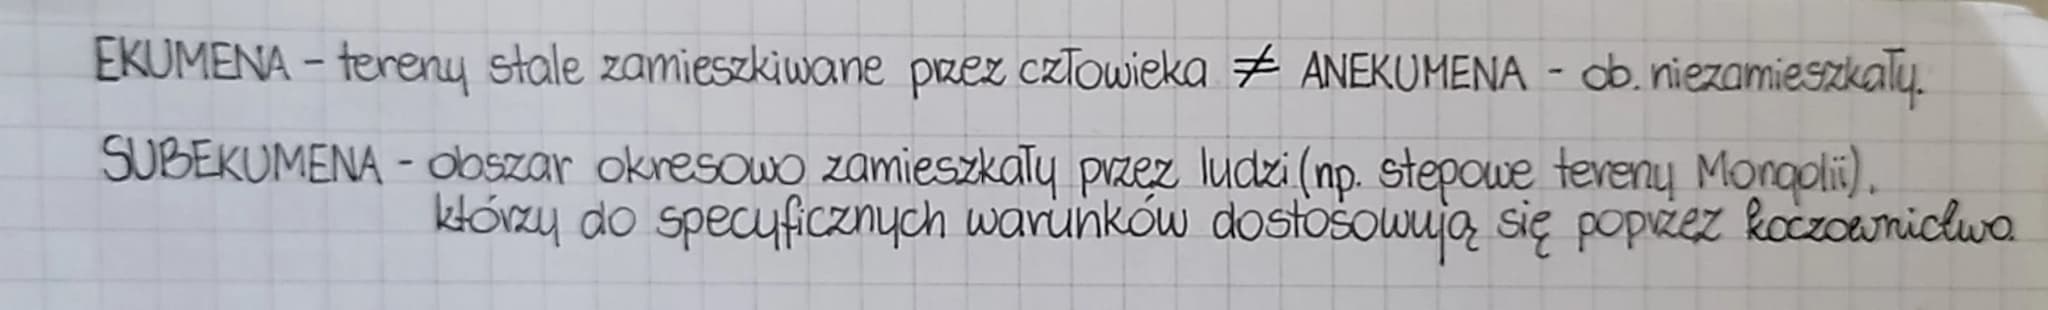 EKUMENA - tereny stale zamieszkiwane przez człowieka ≠ ANEKUMENA - ob. niezamieszkały.
SUBEKUMENA - obszar okresowo zamieszkały przez ludzi (np. stepowe tereny Mongolii),
którzy do specyficznych warunków dostosowują się poprzez koczownictwo.